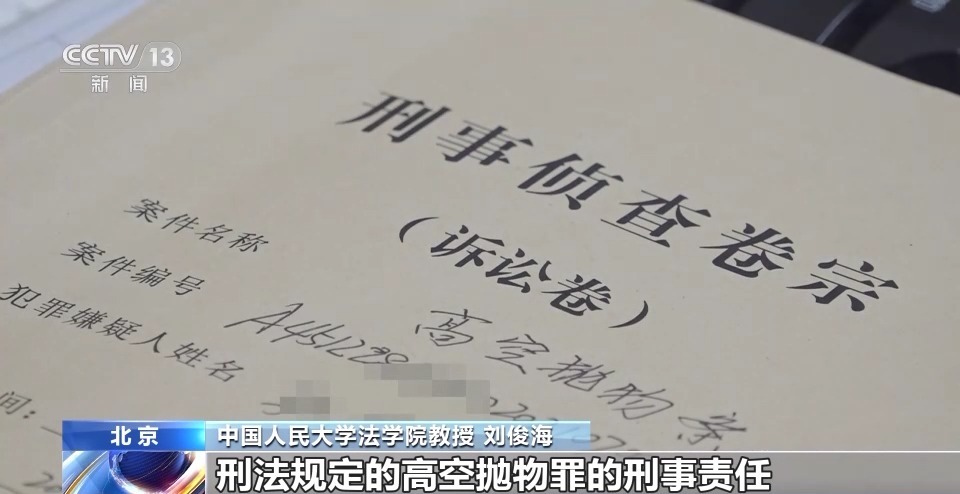 CCTV 13
新闻
刑事侦查卷宗
(诉讼卷)
案件名称 高空抛物案
案件编号 A451229
犯罪嫌疑人姓名
间:
北京
中国人民大学法学院教授 刘俊海
刑法规定的高空抛物罪的刑事责任